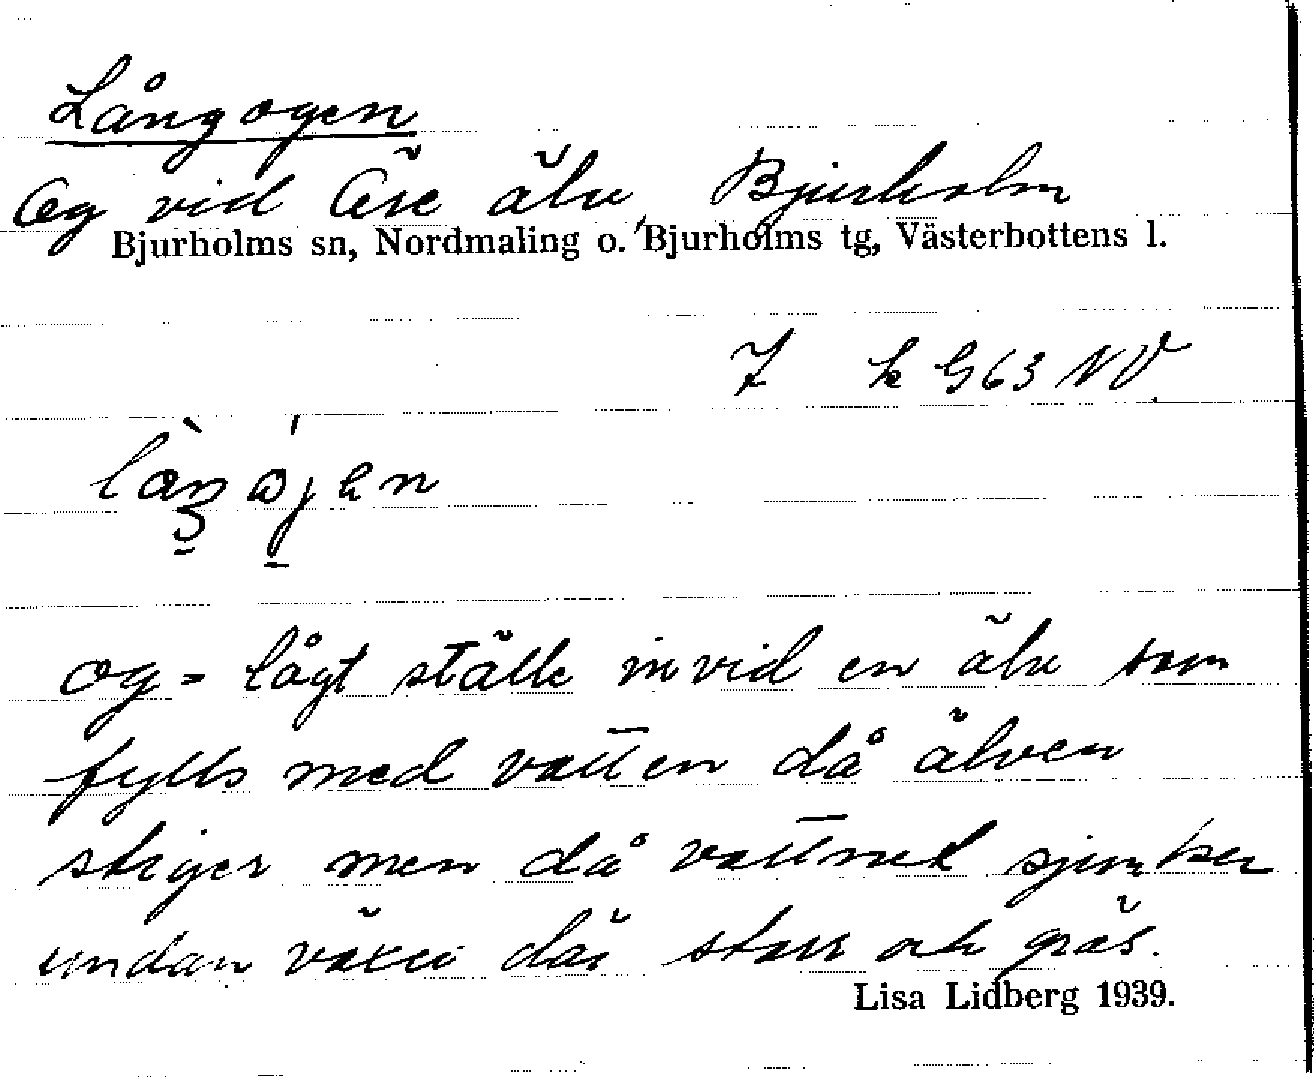 Långogen
Og vid Öre älv, Bjurholm
Bjurholms sn, Nordmaling o. Bjurholms tg, Västerbottens l.
7 k G63 NV
og = lågt ställe invid en älv som
fylls med vatten då älven
stiger men då vattnet sjunker
undan växer där starr och gräs.
Lisa Lidberg 1939.